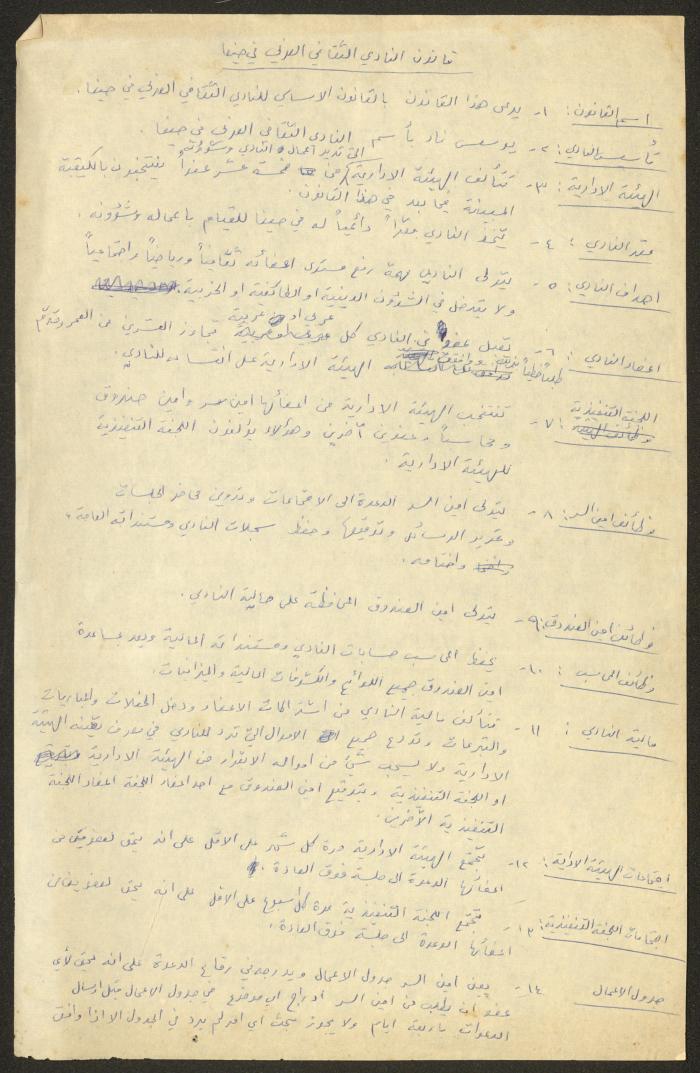 قانون النادي الثقافي العربي في حيفا
اسم القانون : ١- يدعى هذا القانون بالقانون الاساسي للنادي الثقافي العربي في حيفا .
تأسيس النادي : ٢- يؤسس ناد بأسم النادي الثقافي العربي في حيفا .
الهيئة الادارية : ٣- تتألف الهيئة الادارية التي تدير اعمال النادي وشؤونه من خمسة عشر عضواً ينتخبون بالكيفية
المعينة فيما بعد في هذا القانون .
مقر النادي : ٤- يتخذ النادي مقراً دائمياً له في حيفا للقيام باعماله وشؤونه .
اهداف النادي : ٥- يتولى النادي مهمة رفع مستوى اعضائه ثقافياً ورياضياً واجتماعياً
ولا يتدخل في الشؤون الدينية او الطائفية او الحزبية .
اعضاء النادي : ٦- تقبل عضواً في النادي كل عربي او عربية تجاوز العشرين من العمر وتقدم
طلباً خطياً بذلك ووافقت الهيئة الادارية على انتسابه للنادي .
اللجنة التنفيذية : ٧- تنتخب الهيئة الادارية من اعضائها امين سر وامين صندوق
ومحاسباً وعضوين آخرين وهؤلاء يؤلفون اللجنة التنفيذية
للهيئة الادارية .
وظائف امين السر : ٨- يتولى امين السر الدعوة الى الاجتماعات وتدوين محاضر الجلسات
وتحرير الرسائل وتوقيعها وحفظ سجلات النادي ومستنداته العامة
واختامه .
وظائف امين الصندوق : ٩- يتولى امين الصندوق المحافظة على مالية النادي .
وظائف المحاسب : ١٠- يحفظ المحاسب حسابات النادي ومستنداته المالية ويعد بمساعدة
امين الصندوق جميع اللوائح والكشوفات المالية والميزانيات .
مالية النادي : ١١- تتألف مالية النادي من اشتراكات الاعضاء ودخل الحفلات والمباريات
والتبرعات وتودع جميع الاموال التي ترد للنادي في مصرف تعينه الهيئة
الادارية ولا يسحب شيئ من امواله الا بقرار من الهيئة الادارية
او اللجنة التنفيذية وبتوقيع امين الصندوق مع احد اعضاء اللجنة
التنفيذية الآخرين .
اجتماعات الهيئة الادارية : ١٢- تجتمع الهيئة الادارية مرة كل شهر على الاقل على انه يحق لعضوين من
اعضائها الدعوة الى جلسة فوق العادة .
اجتماعات اللجنة التنفيذية : ١٣- تجتمع اللجنة التنفيذية مرة كل اسبوع على الاقل على انه يحق لعضوين من
اعضائها الدعوة الى جلسة فوق العادة .
جدول الاعمال ١٤- يعين امين السر جدول الاعمال ويدرجه في رقاع الدعوة على انه يحق لأي
عضو ان يطلب من امين السر ادراج اي موضوع في جدول الاعمال قبل ارسال
الدعوات باربعة ايام ولا يجوز بحث اي امر لم يرد في الجدول الا اذا وافق